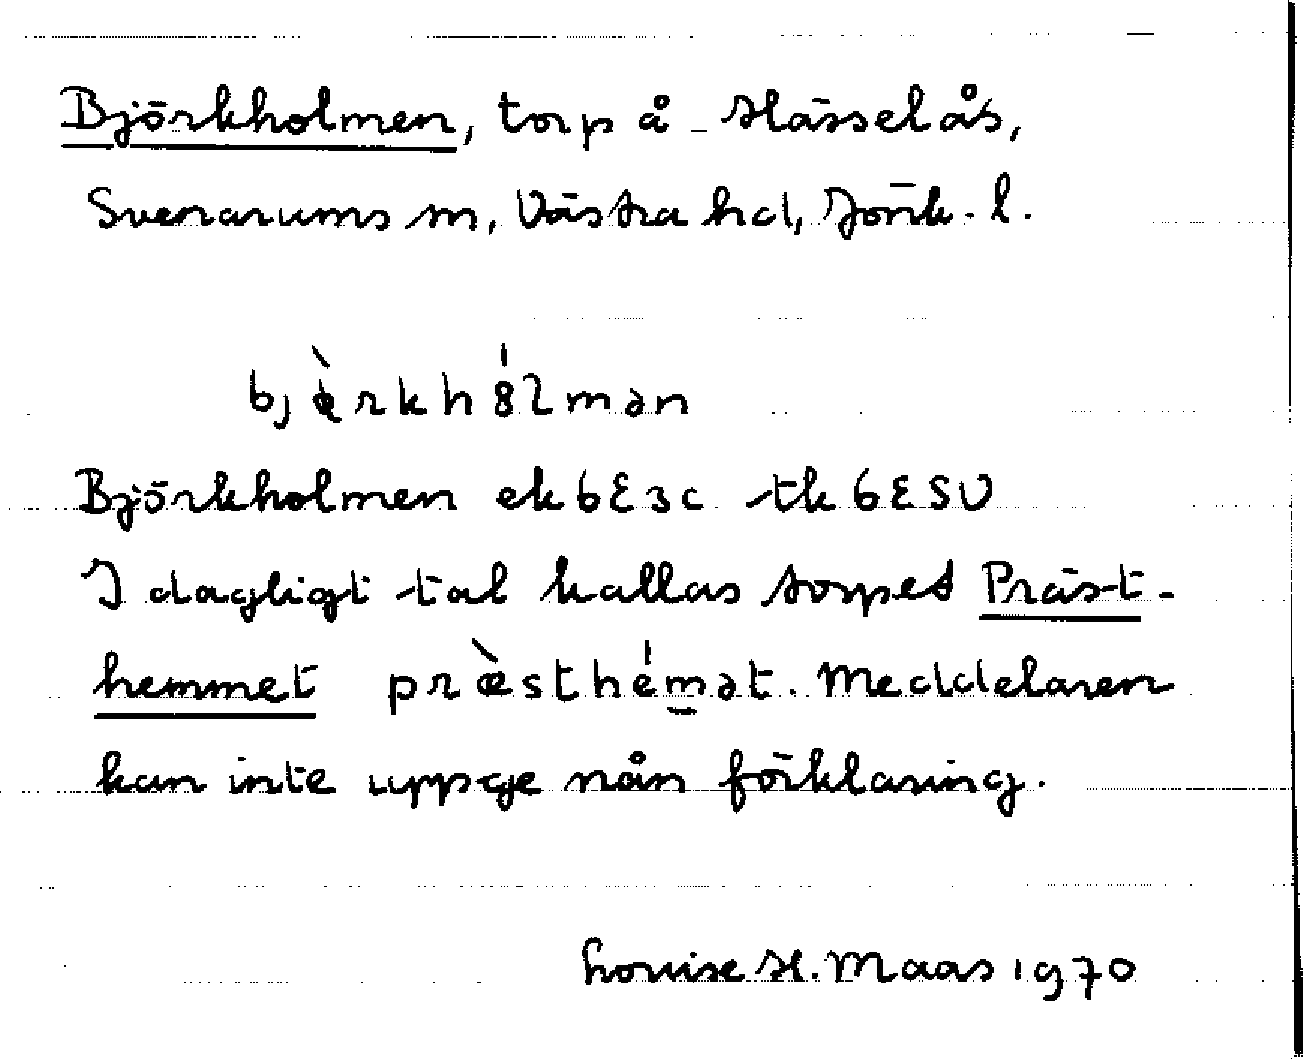 Björkholmen, torp å Hässelås,
Svenarums sn, Västra hd, Jönk. l.
bjèrkhól­mən
Björkholmen ek 6E3c tk 6ESV
I dagligt tal kallas torpet Präst-
hemmet præ̀sthémət. Meddelaren
kan inte uppge nån förklaring.
Louise H. Maas 1970